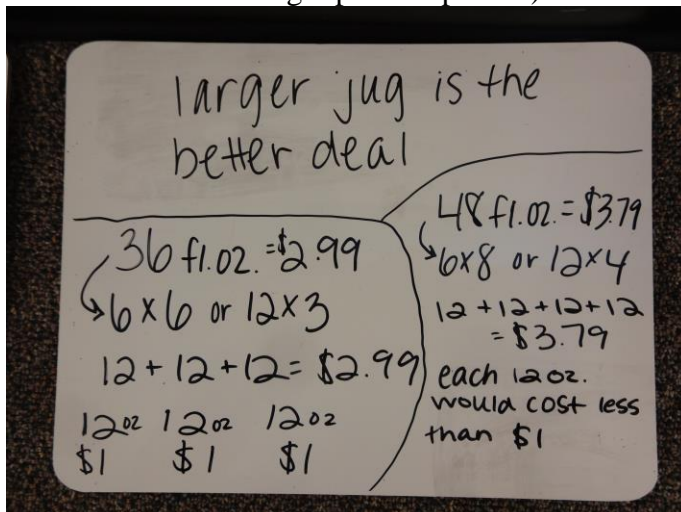 larger jug is the
better deal
36 fl.oz. = $2.99
6 x 6 or 12 x 3
12 + 12 + 12 = $2.99
12 oz 12 oz 12 oz
$1 $1 $1
48 fl.oz. = $3.79
6x8 or 12x4
12 + 12 + 12 + 12
= $3.79
each 12 oz.
would cost less
than $1